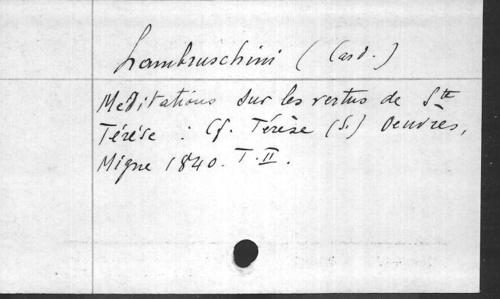 Lambruschini (Card.)
Meditations sur les vertus de Ste
Térèse : Cf. Térèse (S.) Oeuvres,
Migne 1840. T. II.